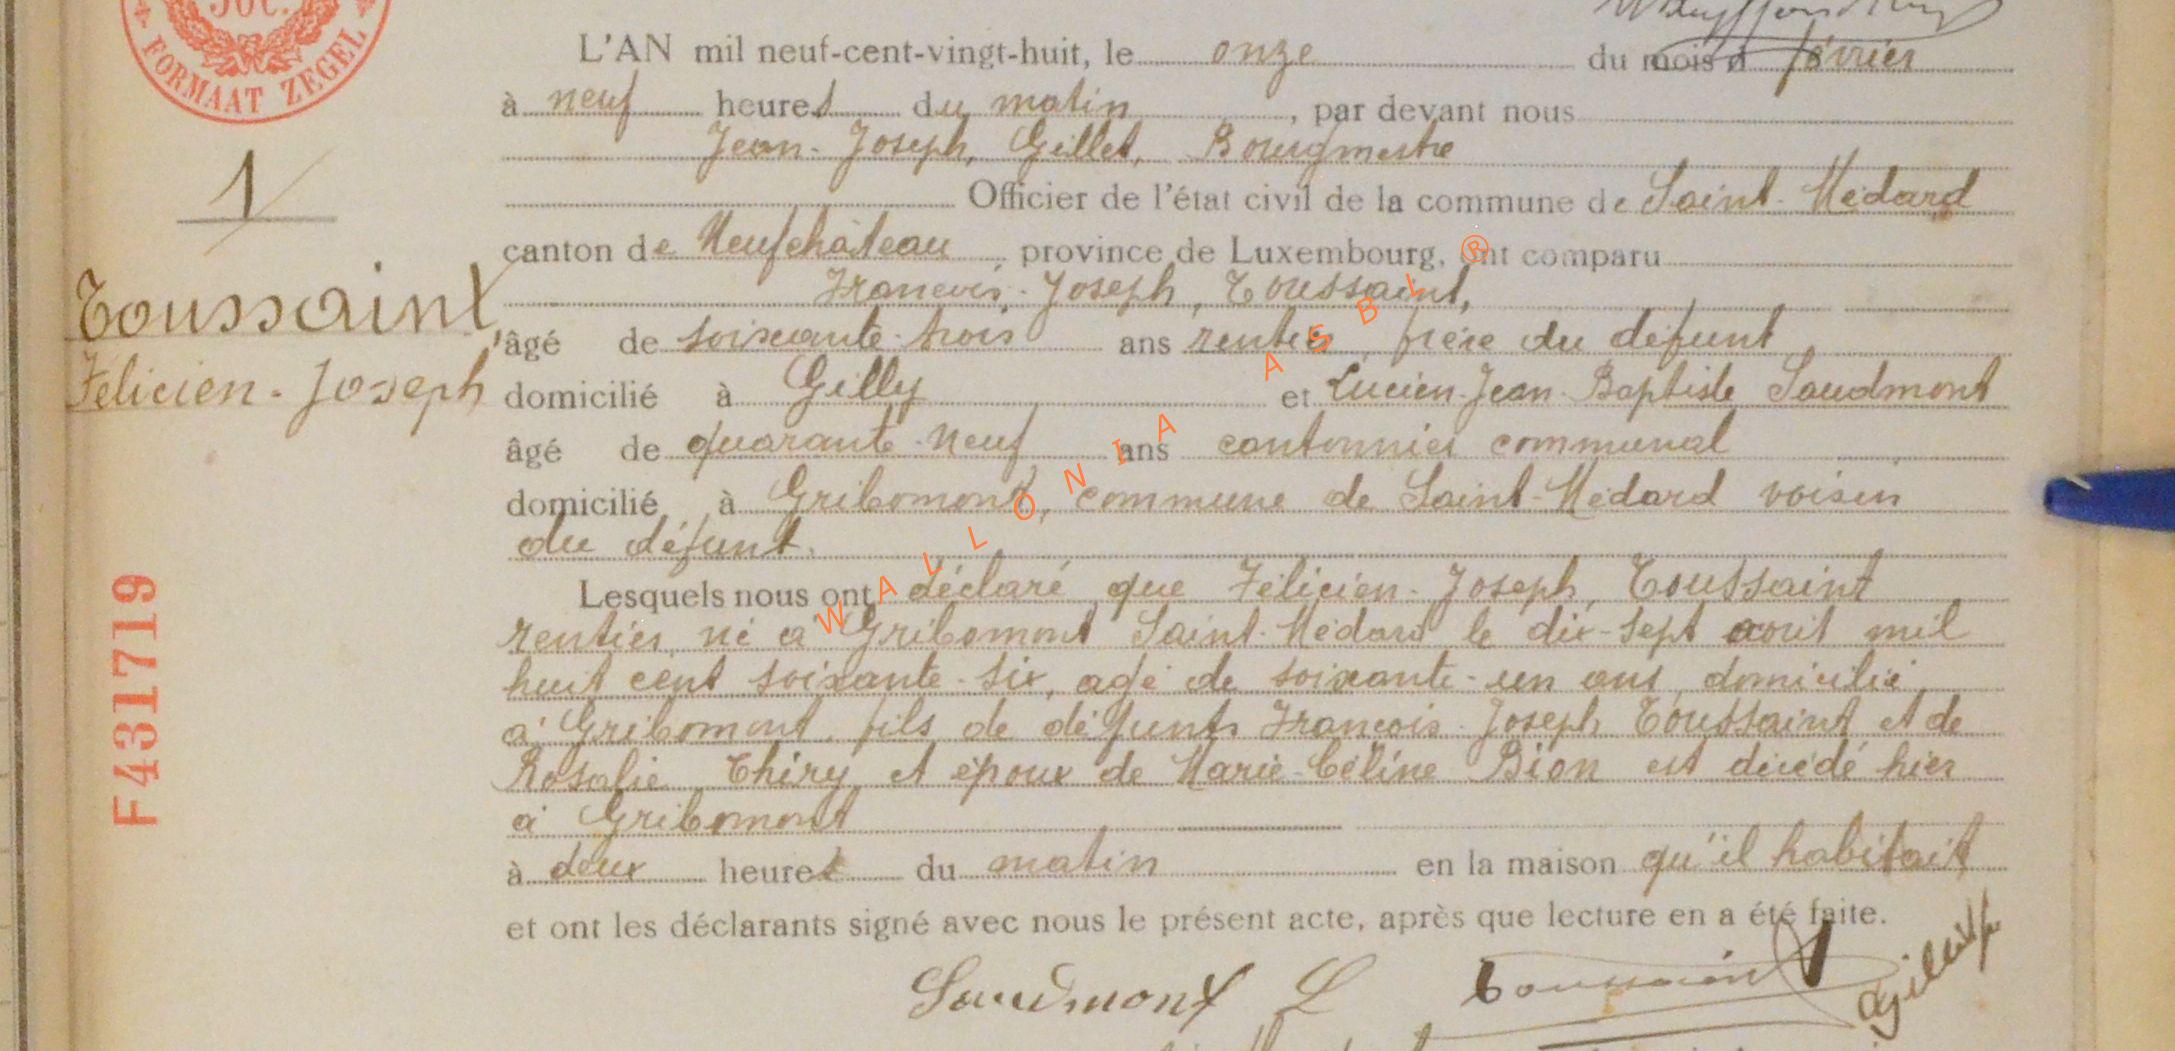 50C.
FORMAAT ZEGEL
L'AN mil neuf-cent-vingt-huit, le onze du mois d février
à neuf heures du matin, par devant nous
Jean-Joseph, Gillet, Bourgmestre
1
Officier de l'état civil de la commune de Saint-Médard
canton de Neufchâteau province de Luxembourg, ont comparu
François-Joseph, Toussaint,
Toussaint,
âgé de soixante-trois ans rentier, frère du défunt
Félicien-Joseph
domicilié à Gilly et Lucien-Jean-Baptiste Saudmont
âgé de quarante-neuf ans cantonnier communal
domicilié à Gribomont, commune de Saint-Médard voisin
du défunt.
Lesquels nous ont déclaré que Félicien-Joseph, Toussaint
rentier, né à Gribomont Saint-Médard le dix-sept août mil
huit cent soixante-six, agé de soixante-un ans, domicilié
à Gribomont, fils de défunts François-Joseph Toussaint et de
Rosalie Thiry et époux de Marie-Céline Bion est décédé hier
à Gribomont
à deux heures du matin en la maison qu'il habitait
et ont les déclarants signé avec nous le présent acte, après que lecture en a été faite.
Saudmont L Toussaint
F431719
WALLONIA ASBL ®